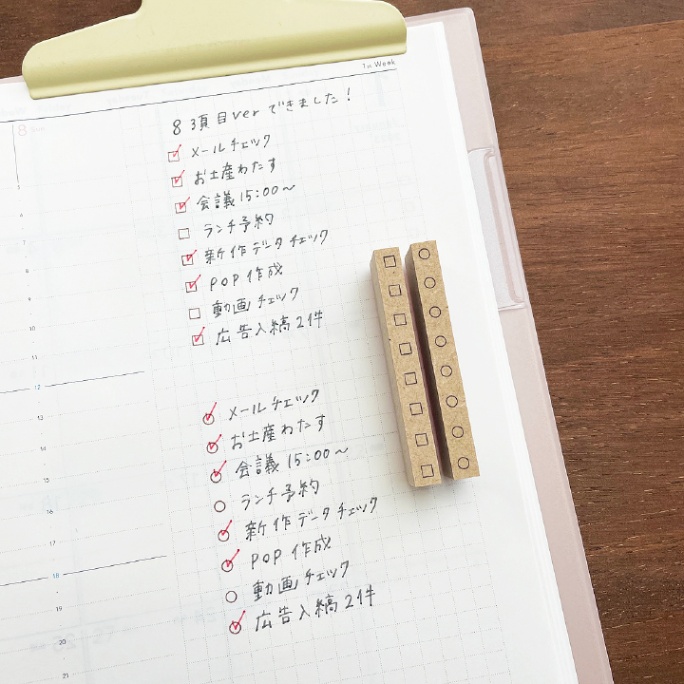 1st Week
8
8 3項目ver できました!
メールチェック
お土産わたす
会議 15:00~
ランチ予約
新作データチェック
POP 作成
動画チェック
広告入稿 2件
メールチェック
お土産わたす
会議 15:00~
ランチ予約
新作データチェック
POP 作成
動画チェック
広告入稿 2件
7
8
9
10
11
12
13
14
15
16
17
18
19
20
21